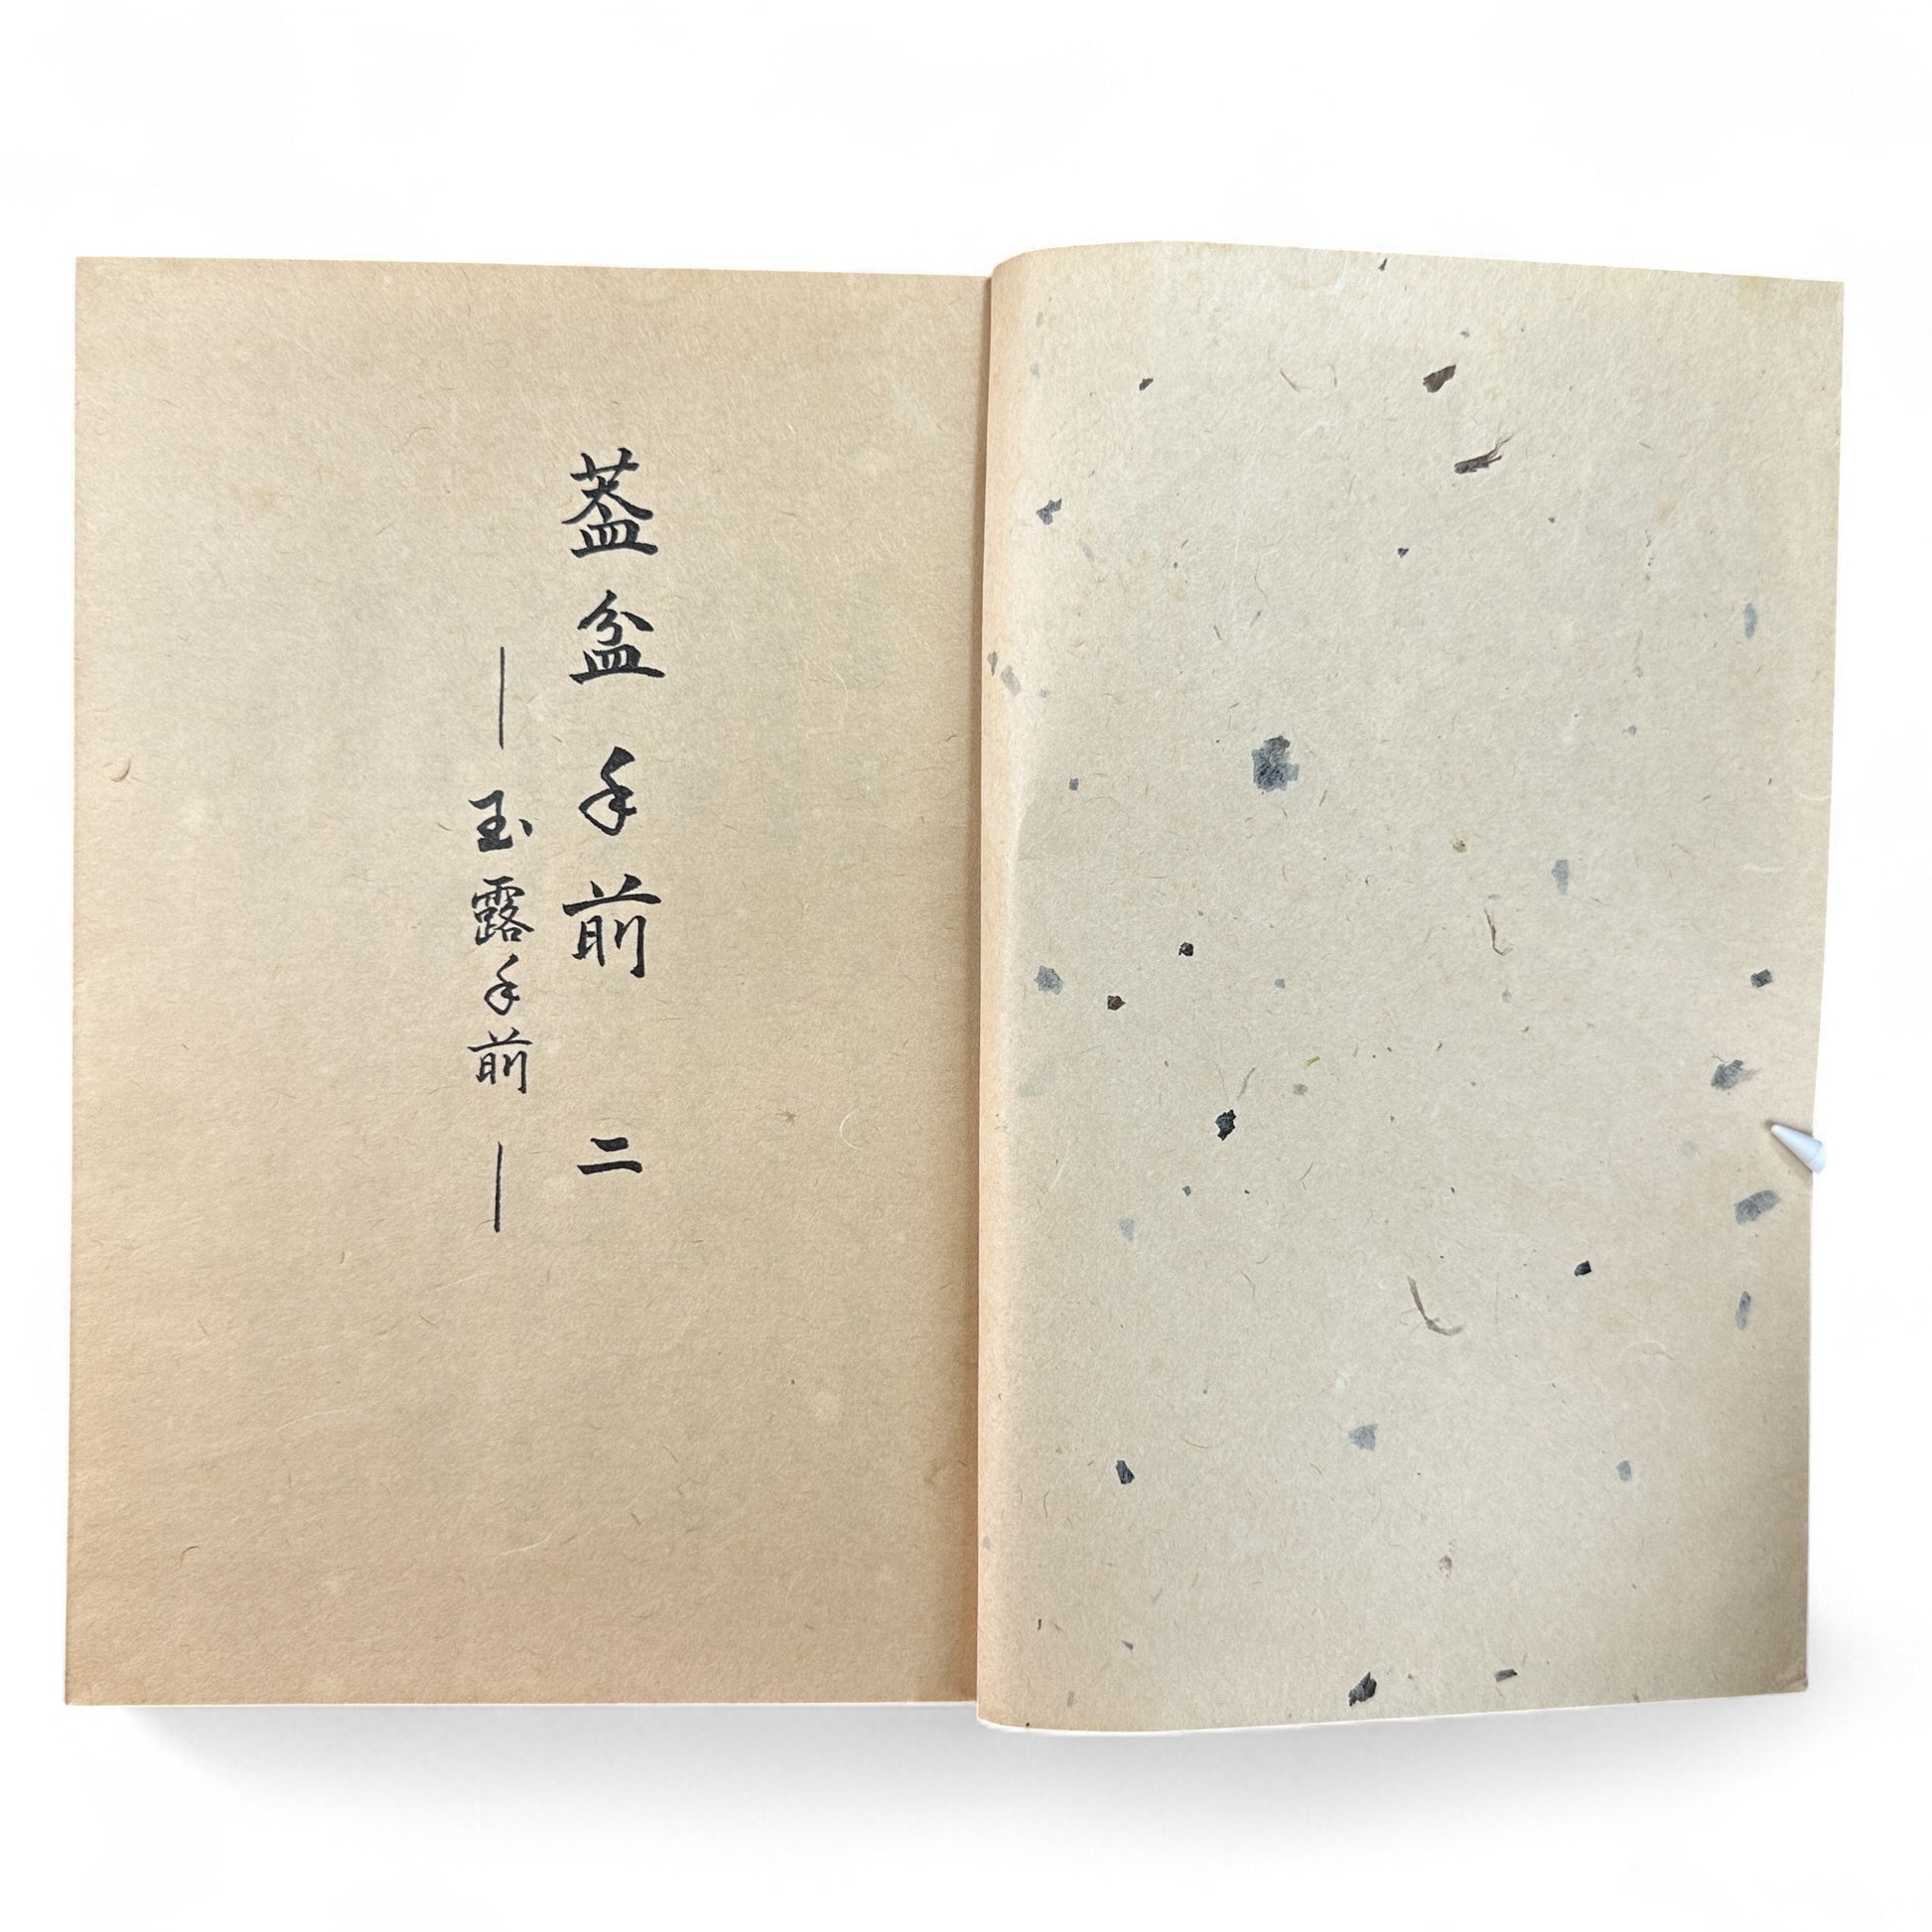 葢盆手前 二
—玉露手前—